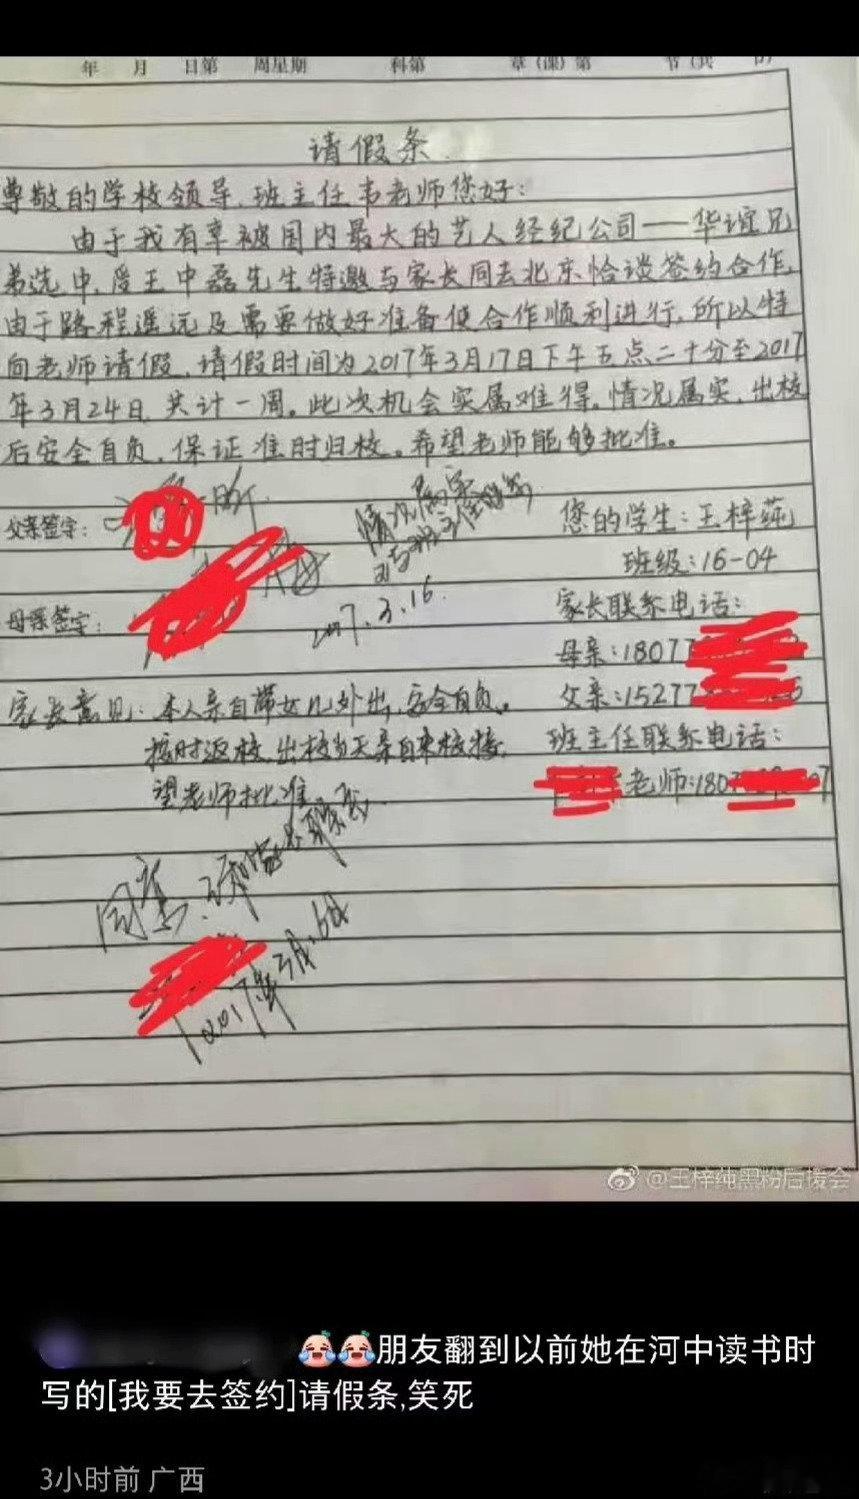 年 月 日第 周星期 科第 章(课)第 节(共 节)
请假条
尊敬的学校领导、班主任韦老师您好:
由于我有幸被国内最大的艺人经纪公司——华谊兄
弟选中,受王中磊先生特邀与家长同去北京洽谈签约合作,
由于路程遥远及需要做好准备使合作顺利进行,所以特
向老师请假,请假时间为2017年3月17日下午五点二十分至2017
年3月24日,共计一周。此次机会实属难得。情况属实,出校
后安全自负,保证准时归校。希望老师能够批准。
父亲签字:
母亲签字:
情况属实
可与班主任联系
2017.3.16.
您的学生:王梓莼
班级:16-04
家长联系电话:
母亲:1807
父亲:15277
班主任联系电话:
老师:180
家长意见:本人亲自带女儿外出,安全自负。
按时返校,出校当天亲自来校接,
望老师批准。
同意
2017年3月16日
@王梓纯黑粉后援会
朋友翻到以前她在河中读书时
写的[我要去签约]请假条,笑死
3小时前 广西